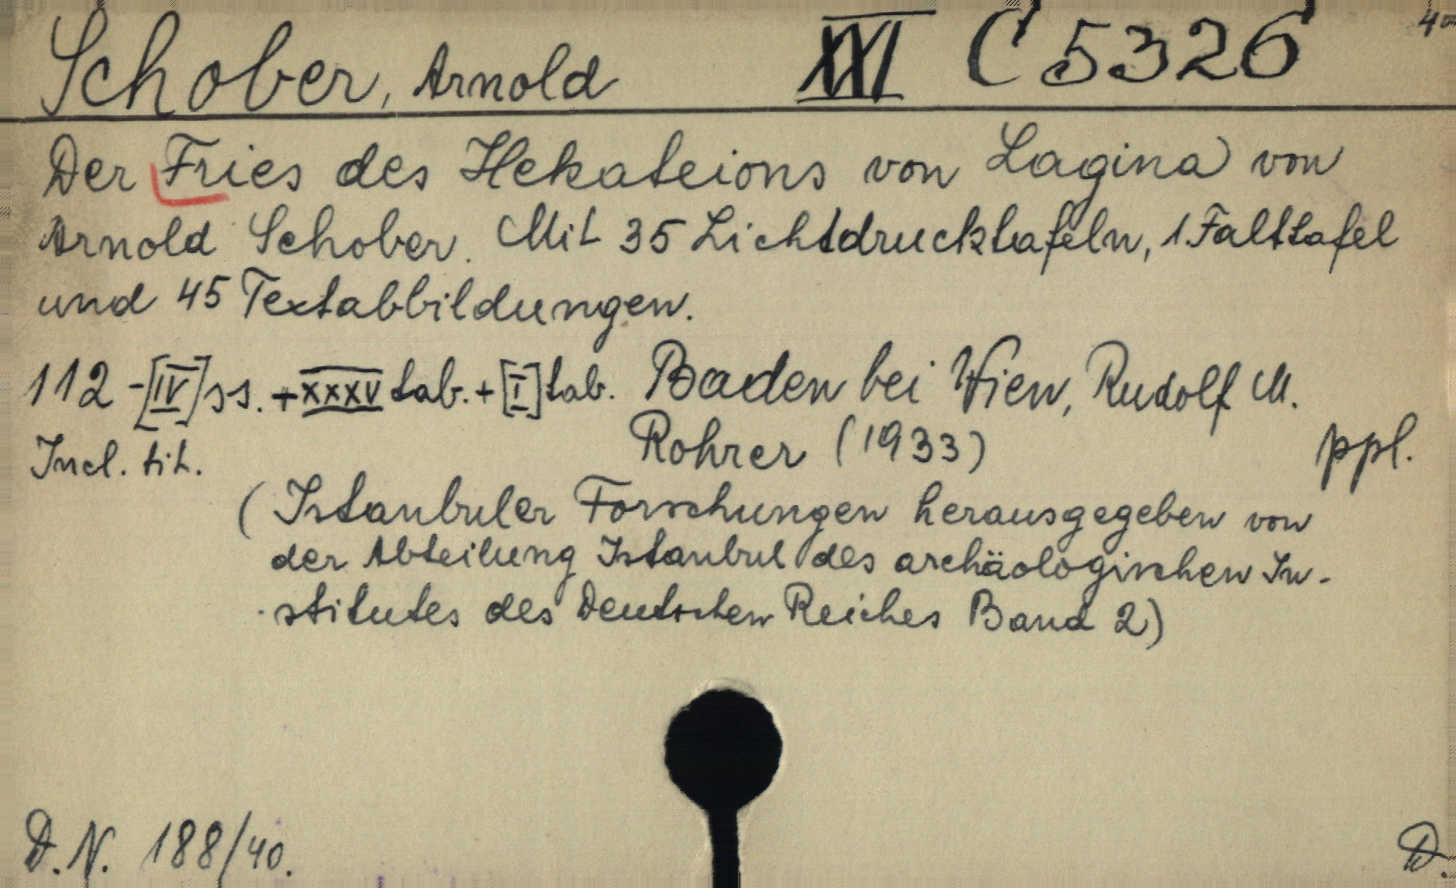 Schober, Arnold XXI C 5326 40
Der Fries des Hekateions von Lagina von
Arnold Schober. Mit 35 Lichtdrucktafeln, 1 Falttafel
und 45 Textabbildungen.
112 - [IV] ss. + XXXV tab. + [I] tab. Baden bei Wien, Rudolf M.
Rohrer (1933)
Incl. tit. ppl.
(Istanbuler Forschungen herausgegeben von
der Abteilung Istanbul des archäologischen In-
stitutes des Deutschen Reiches Band 2)
D. N. 188/40. D.